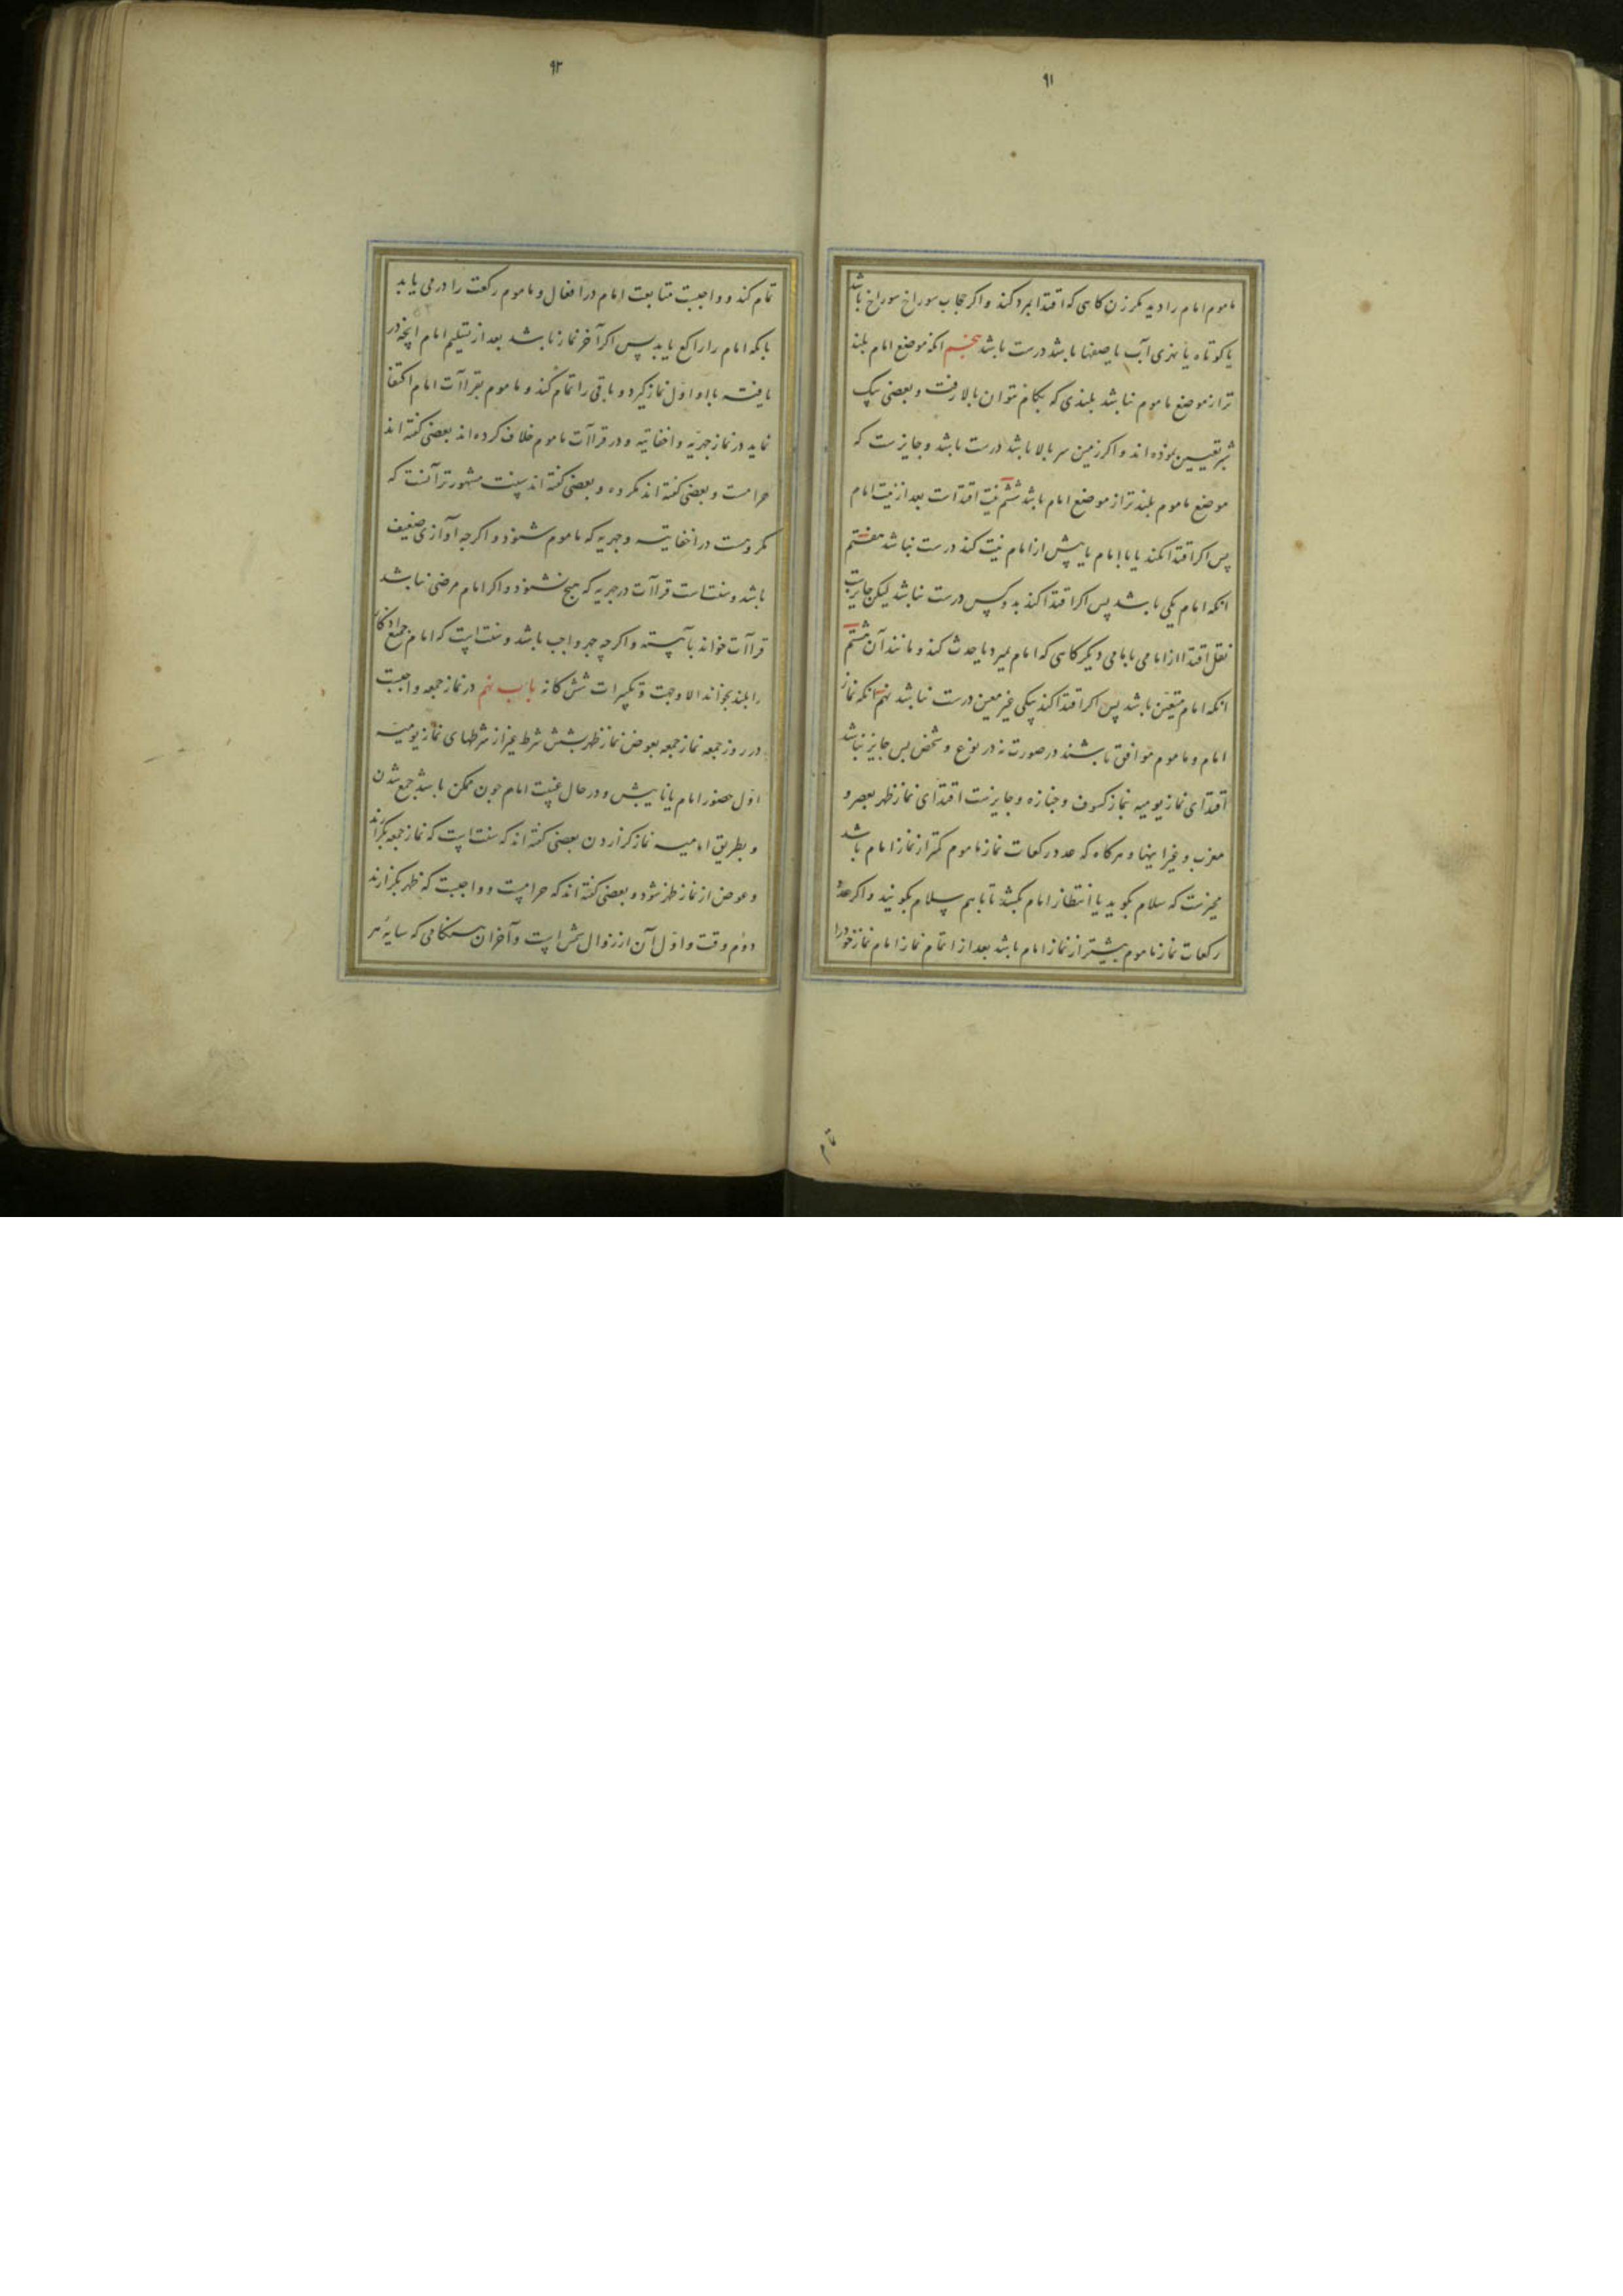 ۹۱
ماموم امام را دید مکر زن کاهی که اقتدا بمرد کند و اکر حجاب سوراخ سوراخ باشد
یا کوتاه یا نهری آب یا صفها باشد درست باشد پنجم انکه موضع امام بلند
تر از موضع ماموم نباشد بلندی که بکام نتوان بالا رفت و بعضی بیک
شبر تعیین نموده اند و اکر زمین سر بالا باشد درست باشد و جایزست که
موضع ماموم بلند تر از موضع امام باشد ششم نیت اقتداست بعد از نیت امام
پس اکر اقتدا نکند یا با امام یا پیش از امام نیت کند درست نباشد هفتم
انکه امام یکی باشد پس اکر اقتدا کند بدو کس درست نباشد لیکن جایزست
نقل اقتدا از امامی بامامی دیکر کاهی که امام بمیرد یا حدث کند و مانند آن هشتم
انکه امام متعین باشد پس اکر اقتدا کند بیکی غیر معین درست نباشد نهم انکه نماز
امام و ماموم موافق باشند در صورت نه در نوع و شخص پس جایز نباشد
اقتدای نماز یومیه بنماز کسوف و جنازه و جایزست اقتدای نماز ظهر بعصر و
مغرب و غیر اینها و هرکاه که عدد رکعات نماز ماموم کمتر از نماز امام باشد
مخیرست که سلام بکوید یا انتظار امام بکشد تا باهم سلام بکویند و اکر عدد
رکعات نماز ماموم بیشتر از نماز امام باشد بعد از اتمام نماز امام نماز خود را
تمام
۹۲
تمام کند و واجبست متابعت امام در افعال و ماموم رکعت را در می یابد
بانکه امام را راکع یابد پس اکر آخر نماز نباشد بعد از تسلیم امام انچه در
یافته با او اول نماز کیرد و باقی را تمام کند و ماموم بقراآت امام اکتفا
نماید در نماز جهریه و اخفاتیه و در قراآت ماموم خلاف کرده اند بعضی کفته اند
حرامست و بعضی کفته اند مکروه و بعضی کفته اند سنت مشهورتر آنست که
مکروهست در اخفاتیه و جهریه که ماموم شنود و اکرچه آوازی ضعیف
باشد و سنتاست قراآت در جهریه که هیچ نشنود و اکر امام مرضی نباشد
قراآت خواند بآهسته و اکرچه جهر واجب باشد و سنتاست که امام جمیع اذکار
را بلند بخواند الا وجهت و تکبیرات شش کانه باب نهم در نماز جمعه واجبست
در روز جمعه نماز جمعه بعوض نماز ظهر بشش شرط غیر از شرطهای نماز یومیه
اول حضور امام یا نایبش و در حال غیبت امام چون ممکن باشد جمع شدن
و بطریق امامیه نماز کزاردن بعضی کفته اند که سنتاست که نماز جمعه بکزارند
و عوض از نماز ظهر شود و بعضی کفته اند که حرامست و واجبست که ظهر بکزارند
دوم وقت و اول آن از زوال شمس است و آخر ان هنکامی که سایه هر